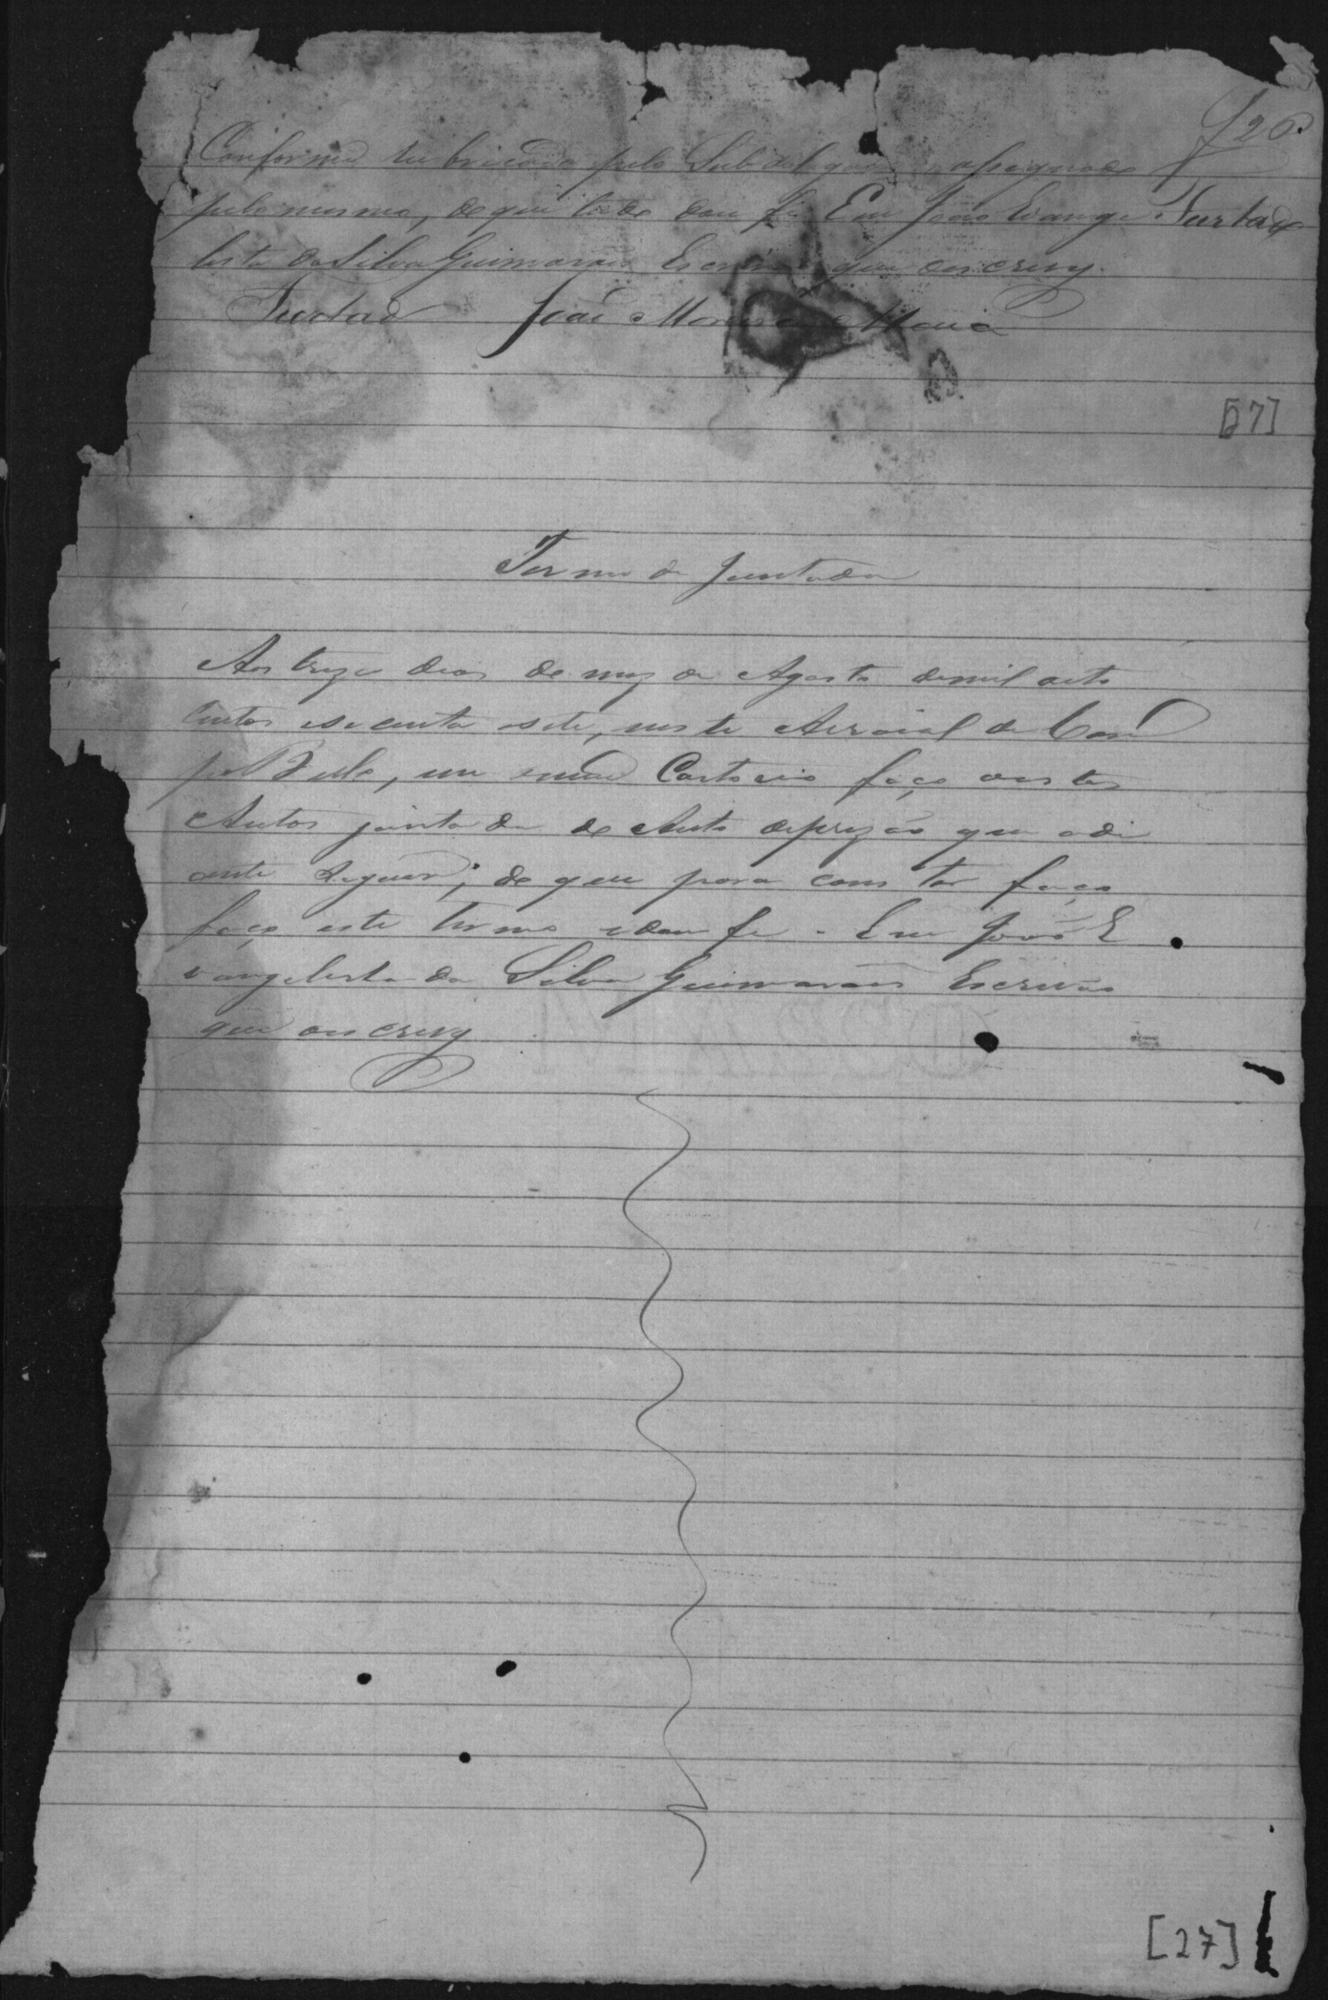 f 26
Conforme rubricado pelo Subdelegado assignado
pelo mesmo, de que tudo dou fé Eu João Evange Furtado
lista da Silva Guimarães Escrivão que oescrevy.
Furtado João Moreira Maia
[27]
Termo de Juntada
Aos treze dias de mez de Agosto demil oito
centos esecenta esete, neste Arraial de Cam
po Bello, em meu Cartorio faço aestes
Autos juntada de Auto deprizão que adi
ante segue; de que para constar faço
faço este termo edou fe. Eu João E
vangelista da Silva Guimarães Escrivão
que oescrevy
[27]